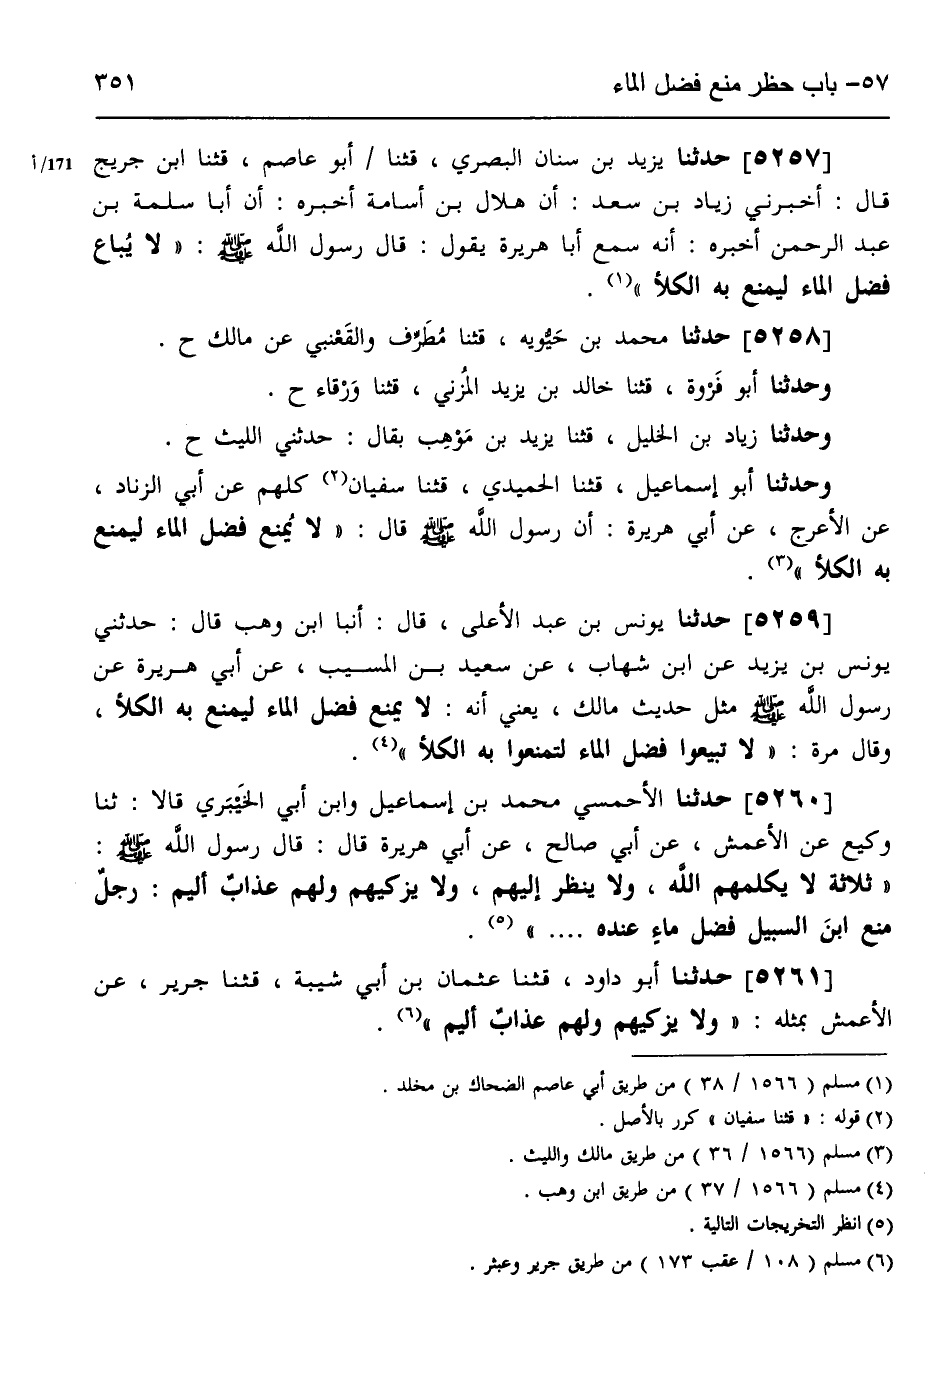 ٥٧- باب حظر منع فضل الماء ٣٥١
[٥٢٥٧] حدثنا يزيد بن سنان البصري ، قثنا / أبو عاصم ، قثنا ابن جريج 171/أ
قال : أخبرني زياد بن سعد : أن هلال بن أسامة أخبره : أن أبا سلمة بن
عبد الرحمن أخبره : أنه سمع أبا هريرة يقول : قال رسول اللَّه ﷺ : « لا يُباع
فضل الماء ليمنع به الكلأ »(١) .
[٥٢٥٨] حدثنا محمد بن حَيُّويه ، قثنا مُطَرِّف والقَعْنبي عن مالك ح .
وحدثنا أبو فَرْوة ، قثنا خالد بن يزيد المُزني ، قثنا وَرْقاء ح .
وحدثنا زياد بن الخليل ، قثنا يزيد بن مَوْهِب بقال : حدثني الليث ح .
وحدثنا أبو إسماعيل ، قثنا الحميدي ، قثنا سفيان(٢) كلهم عن أبي الزناد ،
عن الأعرج ، عن أبي هريرة : أن رسول اللَّه ﷺ قال : « لا يُمنع فضل الماء ليمنع
به الكلأ »(٣) .
[٥٢٥٩] حدثنا يونس بن عبد الأعلى ، قال : أنبا ابن وهب قال : حدثني
يونس بن يزيد عن ابن شهاب ، عن سعيد بن المسيب ، عن أبي هريرة عن
رسول اللَّه ﷺ مثل حديث مالك ، يعني أنه : لا يمنع فضل الماء ليمنع به الكلأ ،
وقال مرة : « لا تبيعوا فضل الماء لتمنعوا به الكلأ »(٤) .
[٥٢٦٠] حدثنا الأحمسي محمد بن إسماعيل وابن أبي الخَيْبَري قالا : ثنا
وكيع عن الأعمش ، عن أبي صالح ، عن أبي هريرة قال : قال رسول اللَّه ﷺ :
« ثلاثة لا يكلمهم اللَّه ، ولا ينظر إليهم ، ولا يزكيهم ولهم عذابٌ أليم : رجلٌ
منع ابنَ السبيل فضل ماءٍ عنده .... » (٥) .
[٥٢٦١] حدثنا أبو داود ، قثنا عثمان بن أبي شيبة ، قثنا جرير ، عن
الأعمش بمثله : « ولا يزكيهم ولهم عذابٌ أليم »(٦) .
(١) مسلم ( ١٥٦٦ / ٣٨ ) من طريق أبي عاصم الضحاك بن مخلد .
(٢) قوله : « قثنا سفيان » كرر بالأصل .
(٣) مسلم (١٥٦٦ / ٣٦ ) من طريق مالك والليث .
(٤) مسلم ( ١٥٦٦ / ٣٧ ) من طريق ابن وهب .
(٥) انظر التخريجات التالية .
(٦) مسلم ( ١٠٨ / عقب ١٧٣ ) من طريق جرير وعبثر .